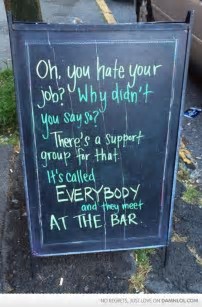 Oh, you hate your
job? Why didn't
you say so?
There's a support
group for that
It's called
EVERYBODY
and they meet
AT THE BAR.
NO REGRETS, JUST LOVE ON DAMNLOL.COM